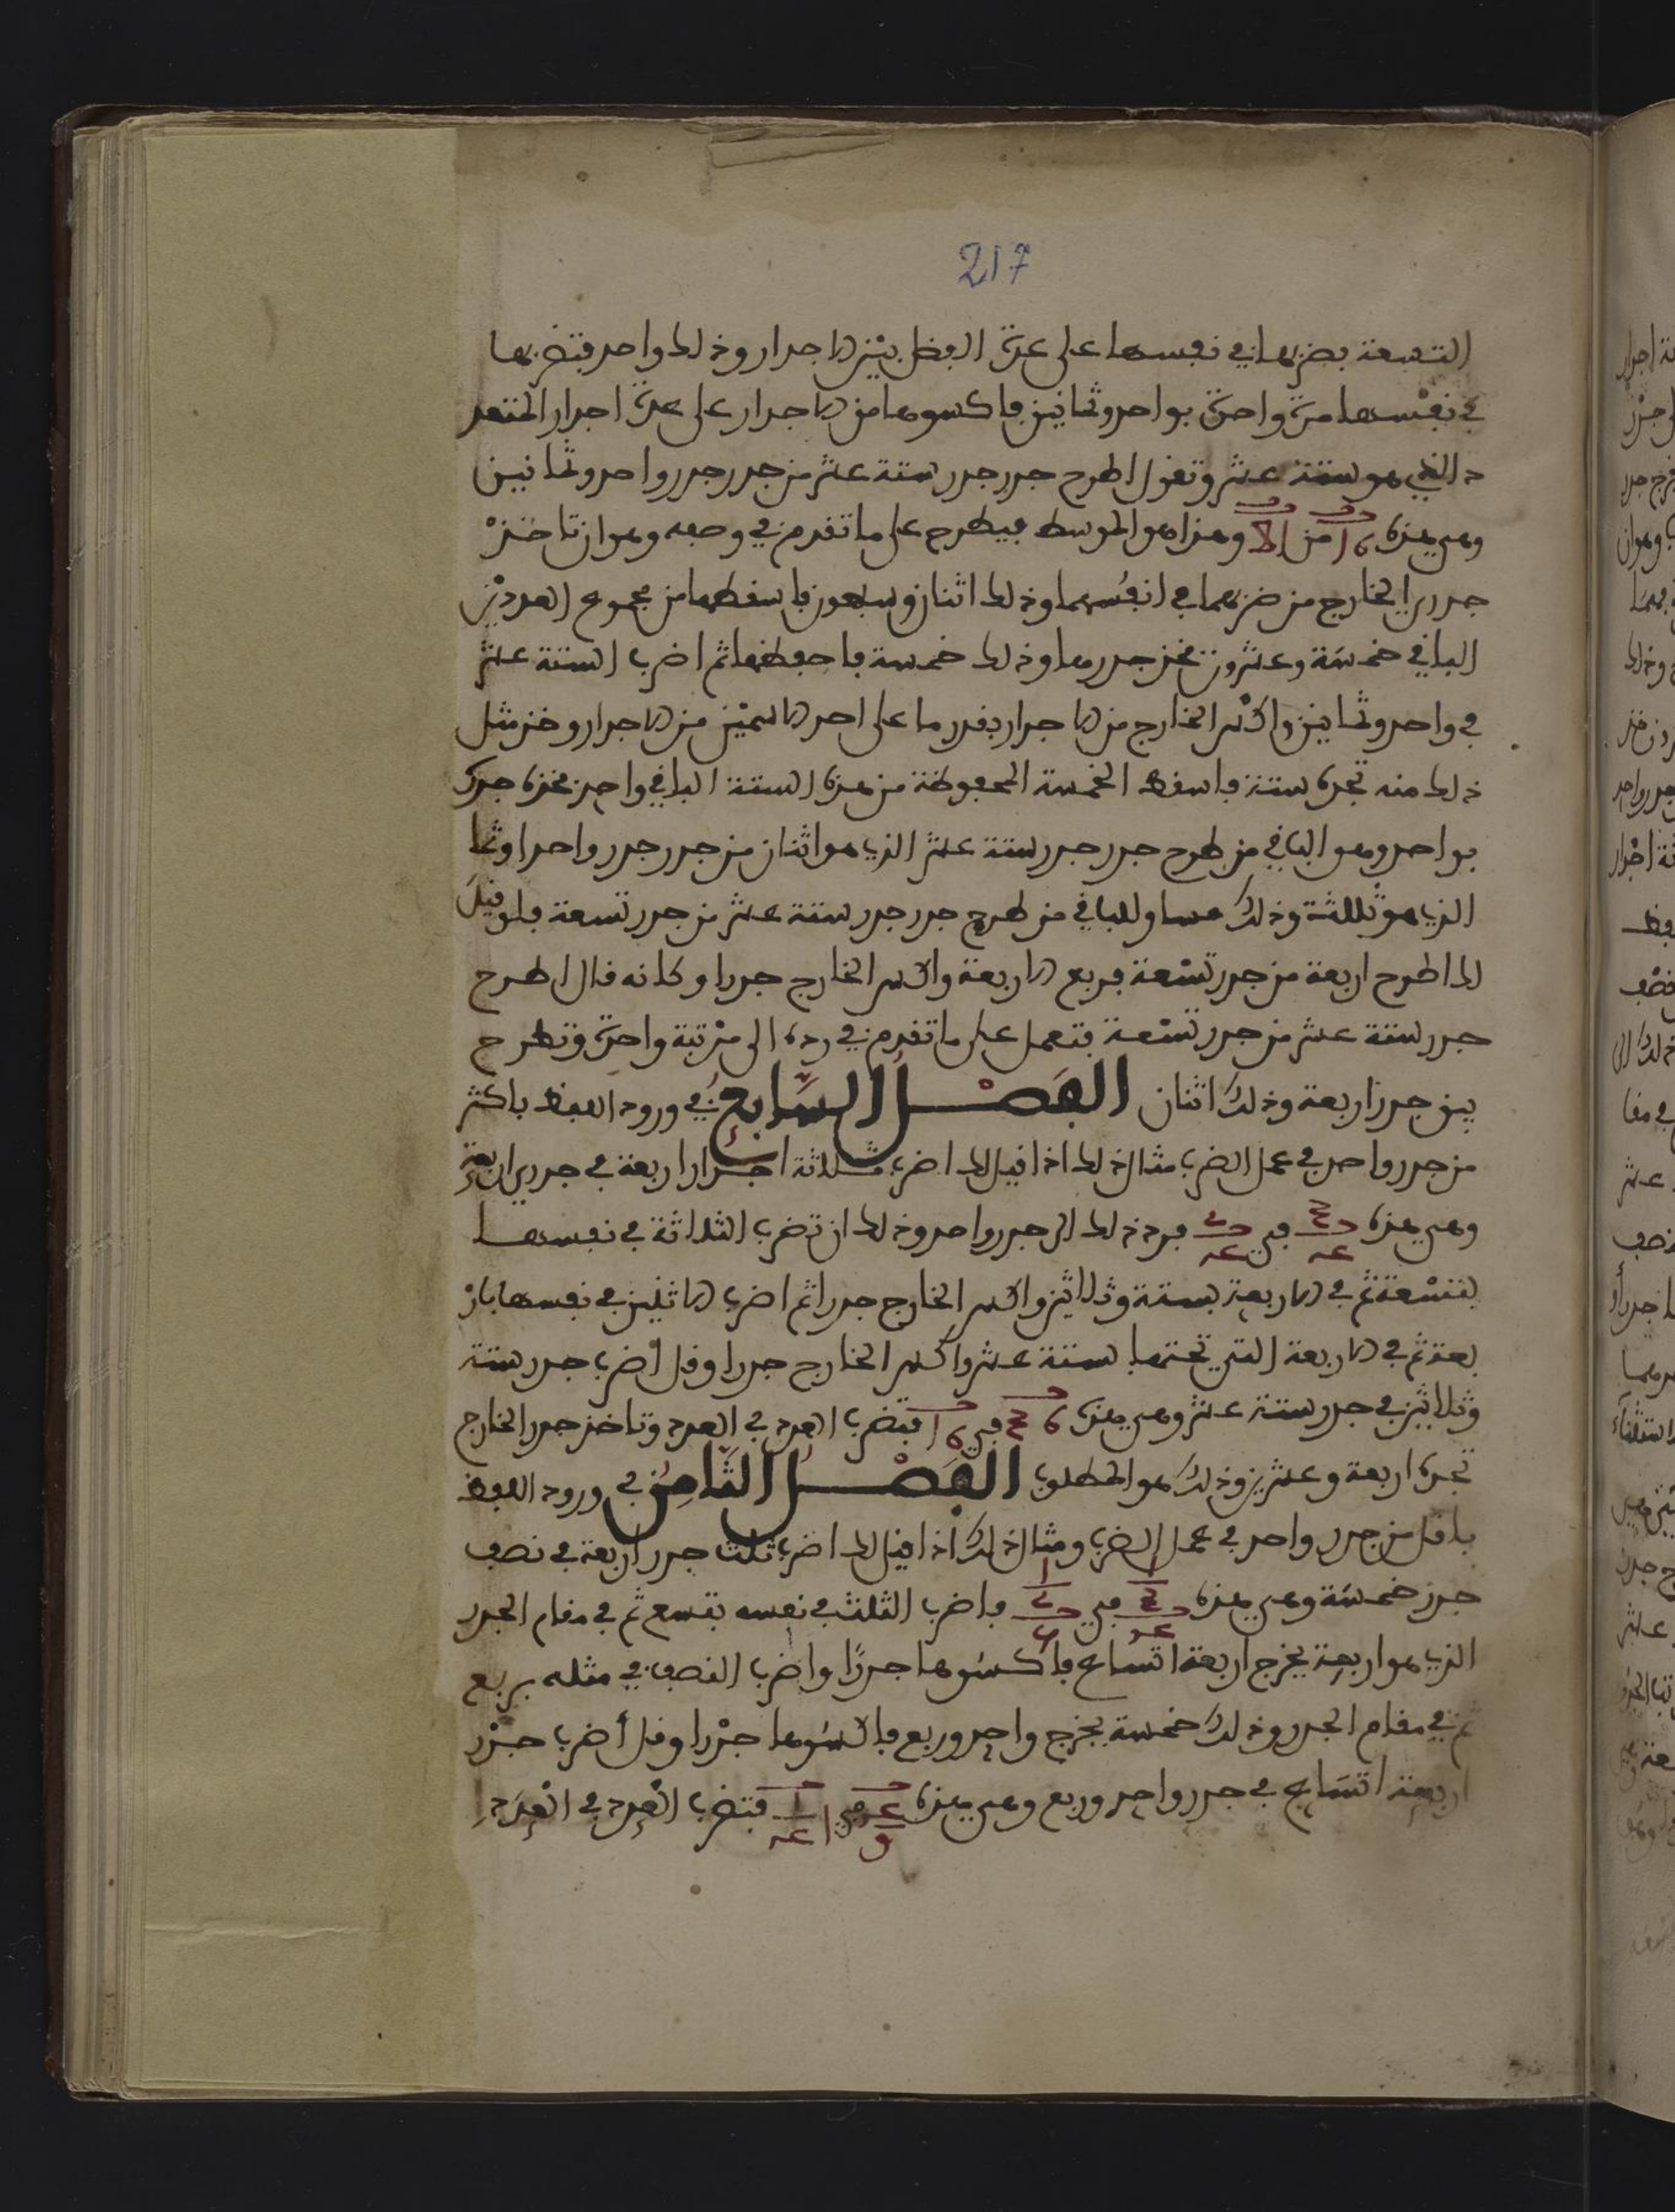 217
التسعة بضربها في نفسها على عدة الفضل بين الاجذار وذلك واحد فتضربها
في نفسها مرة واحدة بواحد وثمانين فاكسوها من الاجذار على عدة اجذار المتعد
د الذي هو ستة عشر وتقول اطرح جذر جذر ستة عشر من جذر جذر واحد وثمانين
وهي هذه من وهذا هو الموسط فيطرح على ما تقدم في وصفه وهو ان تاخذ
جذري الخارج من ضربهما في انفسهما وذلك اثنان وسبعون فاسقطها من مجموع العددين
الباقي خمسة وعشرون فخذ جذرها وذلك خمسة فاحفظها ثم اضرب الستة عشر
في واحد وثمانين واكس الخارج من الاجذار بقدر ما على احد الاسمين من الاجذار وخذ مثل
ذلك منه تجده ستة فاسقط الخمسة المحفوظة من هذه الستة الباقي واحد فخذ جذره
بواحد وهو الباقي من طرح جذر جذر ستة عشر الذي هو اثنان من جذر جذر واحد وثما
الذي هو ثلثة وذلك مساو للباقي من طرح جذر جذر ستة عشر من جذر تسعة فلو قيل
لك اطرح اربعة من جذر تسعة فربع الاربعة واكس الخارج جذرا وكانه قال اطرح
جذر ستة عشر من جذر تسعة فتعمل على ما تقدم في رده الى مرتبة واحدة وتطرح
بين جذر اربعة وذلك اثنان الفصل السابع في ورود اللفظ باكثر
من جذر واحد في عمل الضرب مثال ذلك اذا قيل لك اضرب ثلاثة اجذار اربعة في جذري اربعة
وهي هذه في فرد ذلك الى جذر واحد وذلك ان تضرب الثلاثة في نفسها
بتسعة ثم في الاربعة بستة وثلاثين واكس الخارج جذرا ثم اضرب الاثنين في نفسها بار
بعة ثم في الاربعة التي تحتها بستة عشر واكس الخارج جذرا وقل اضرب جذر ستة
وثلاثين في جذر ستة عشر وهي هذه في فتضرب العدد في العدد وتاخذ جذر الخارج
تجده اربعة وعشرين وذلك هو المطلوب الفصل الثامن في ورود اللفظ
باقل من جذر واحد في عمل الضرب ومثال ذلك اذا قيل لك اضرب ثلث جذر اربعة في نصف
جذر خمسة وهي هذه في فاضرب الثلث في نفسه بتسع ثم في مقام الجذر
الذي هو اربعة يخرج اربعة اتساع فاكسوها جذرًا واضرب النصف في مثله بربع
ثم في مقام الجذر وذلك خمسة يخرج واحد وربع فاكسوها جذرا وقل أضرب جذر
اربعة اتساع في جذر واحد وربع وهي هذه في فتضرب العدد في العدد